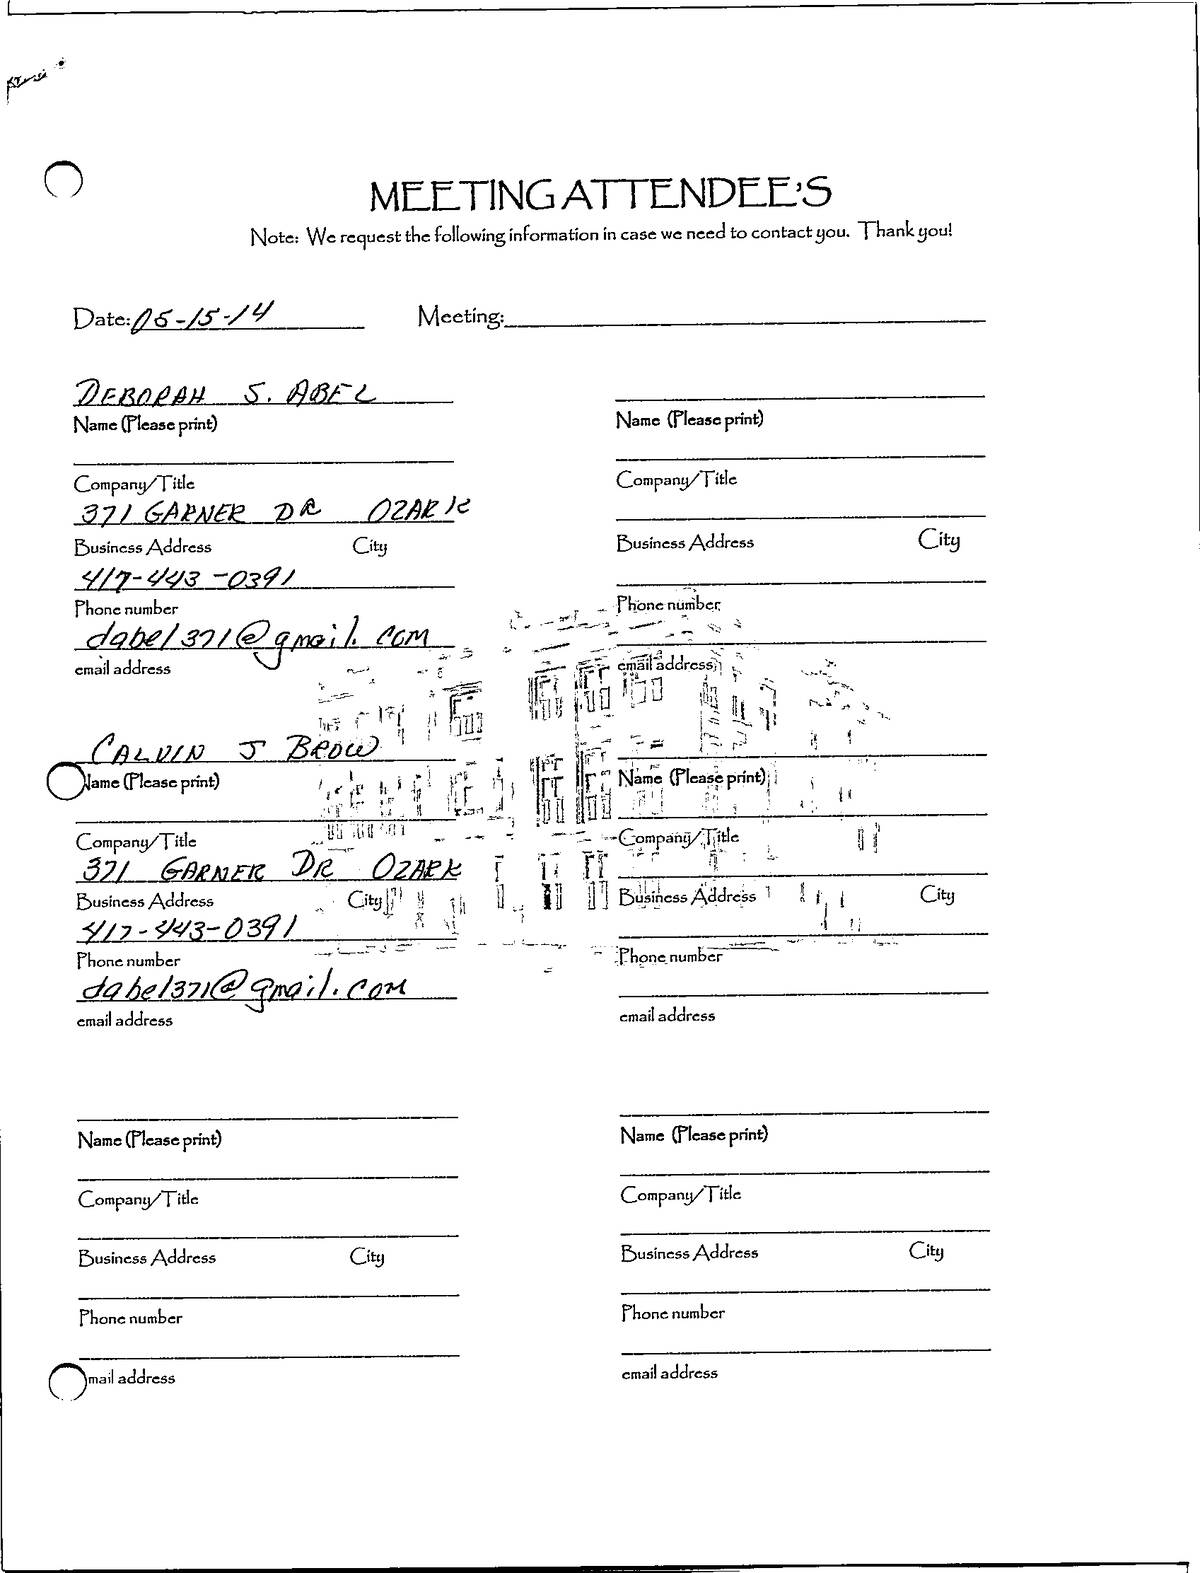 MEETING ATTENDEE'S
Note: We request the following information in case we need to contact you. Thank you!
Date: 05-15-14 Meeting:
DEBORAH S. ABEL
Name (Please print) Name (Please print)
Company/Title Company/Title
371 GARNER DR OZARK
Business Address City Business Address City
417-443-0391
Phone number Phone number
dabel371@gmail.com
email address email address
CALVIN J BROW
Name (Please print) Name (Please print)
Company/Title Company/Title
371 GARNER DR OZARK
Business Address City Business Address City
417-443-0391
Phone number Phone number
dabel371@gmail.com
email address email address
Name (Please print) Name (Please print)
Company/Title Company/Title
Business Address City Business Address City
Phone number Phone number
mail address email address